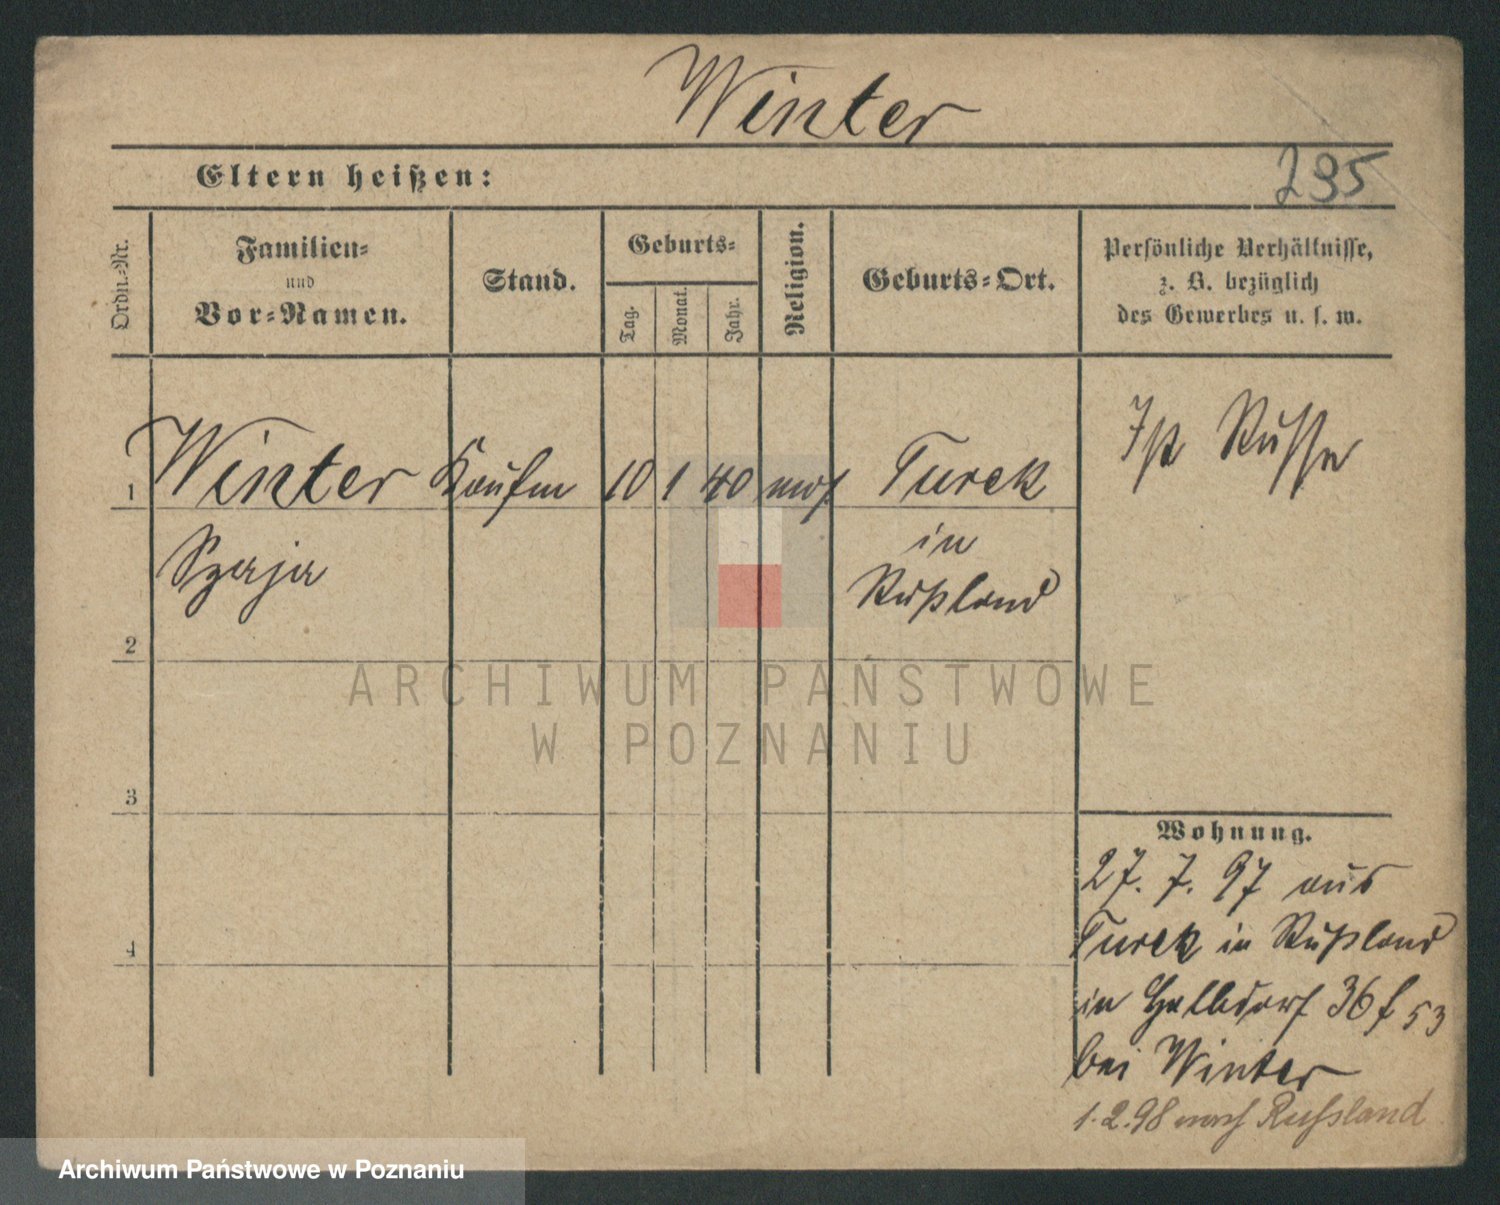 Winter
Eltern heißen:
295
Ordn.=Nr.
Familien=
und
Vor=Namen.
Stand.
Geburts=
Tag.
Monat.
Jahr.
Religion.
Geburts=Ort.
Persönliche Verhältnisse,
z. B. bezüglich
des Gewerbes u. s. w.
1 Winter Kaufm 10 1 40 mos Turek
Szaja
in
Rußland
Ist Russe
2
3
4
Wohnung.
27. 7. 97 aus
Turek in Rußland
in Halbdorf 36 f 53
bei Winter
1.2.98 nach Russland
ARCHIWUM PAŃSTWOWE
W POZNANIU
Archiwum Państwowe w Poznaniu